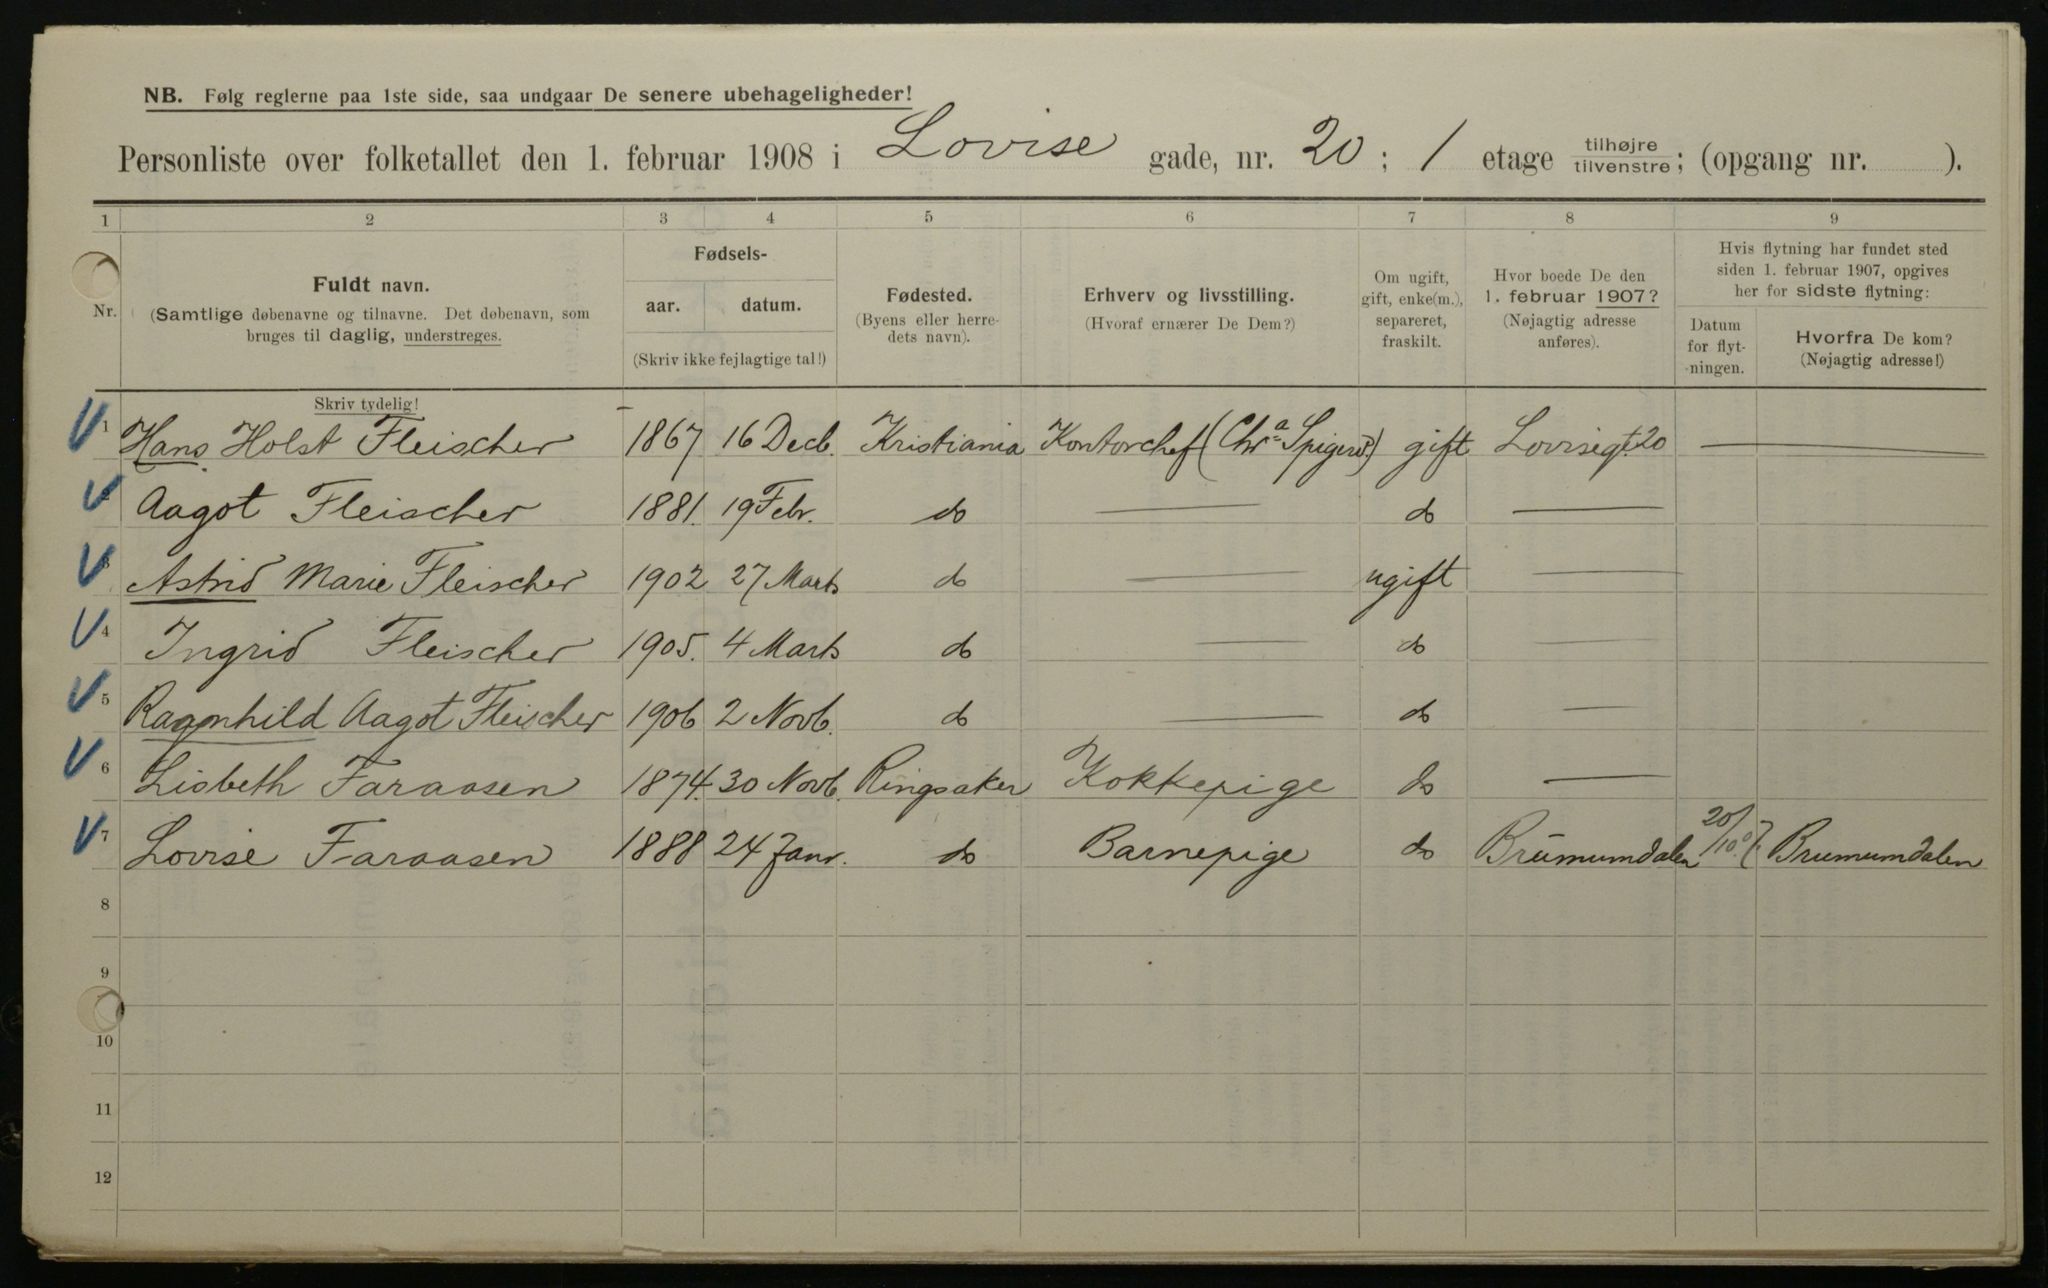 NB. Følg reglerne paa 1ste side, saa undgaar De senere ubehageligheder!
Personliste over folketallet den 1. februar 1908 i Lovise gade, nr. 20; 1 etage tilhøjre tilvenstre; (opgang nr. ).
1 2 3 4 5 6 7 8 9
Nr.
Fuldt navn.
(Samtlige døbenavne og tilnavne. Det døbenavn, som
bruges til daglig, understreges.
Fødsels-
aar. datum.
(Skriv ikke fejlagtige tal!)
Fødested.
(Byens eller herre-
dets navn).
Erhverv og livsstilling.
(Hvoraf ernærer De Dem?)
Om ugift,
gift, enke(m.),
separeret,
fraskilt.
Hvor boede De den
1. februar 1907?
(Nøjagtig adresse
anføres).
Hvis flytning har fundet sted
siden 1. februar 1907, opgives
her for sidste flytning:
Datum
for flyt-
ningen.
Hvorfra De kom?
(Nøjagtig adresse!)
Skriv tydelig!
1 Hans Holst Fleischer 1867 16 Decb. Kristiania Kontorchef (Chra Spigerv.) gift Lovisegt. 20 —
2 Aagot Fleischer 1881. 19 Febr. do — do —
3 Astrid Marie Fleischer 1902 27 Marts do — ugift —
4 Ingrid Fleischer 1905. 4 Marts do — do —
5 Ragnhild Aagot Fleischer 1906 2 Novb. do — do —
6 Lisbeth Faraasen 1874. 30 Novb. Ringsaker Kokkepige do —
7 Lovise Faraasen 1888 24 Janr. do Barnepige do Brumumdalen 20/10 07. Brumumdalen
8
9
10
11
12